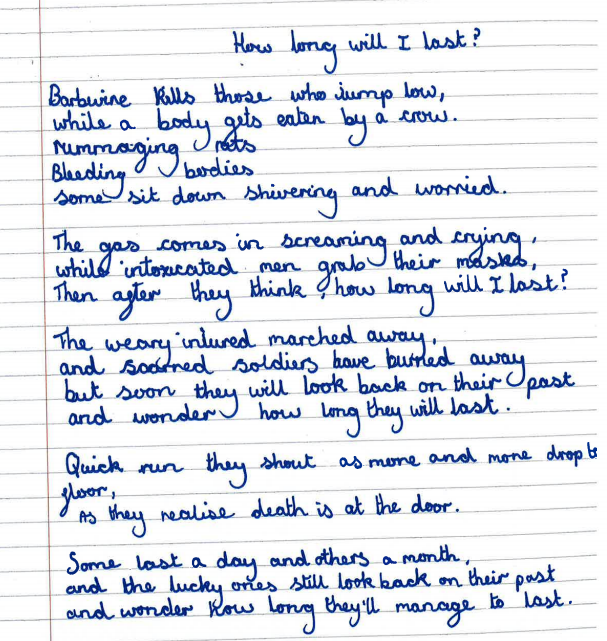 How long will I last?
Barbwire kills those who jump low,
while a body gets eaten by a crow.
rummaging rats
Bleeding bodies
some sit down shivering and worried.
The gas comes in screaming and crying,
while intoxicated men grab their masks,
Then after they think, how long will I last?
The weary injured marched away,
and scarred soldiers have burried away
but soon they will look back on their past
and wonder how long they will last.
Quick run they shout as more and more drop to
floor,
As they realise death is at the door.
Some last a day and others a month,
and the lucky ones still look back on their past
and wonder how long they'll manage to last.